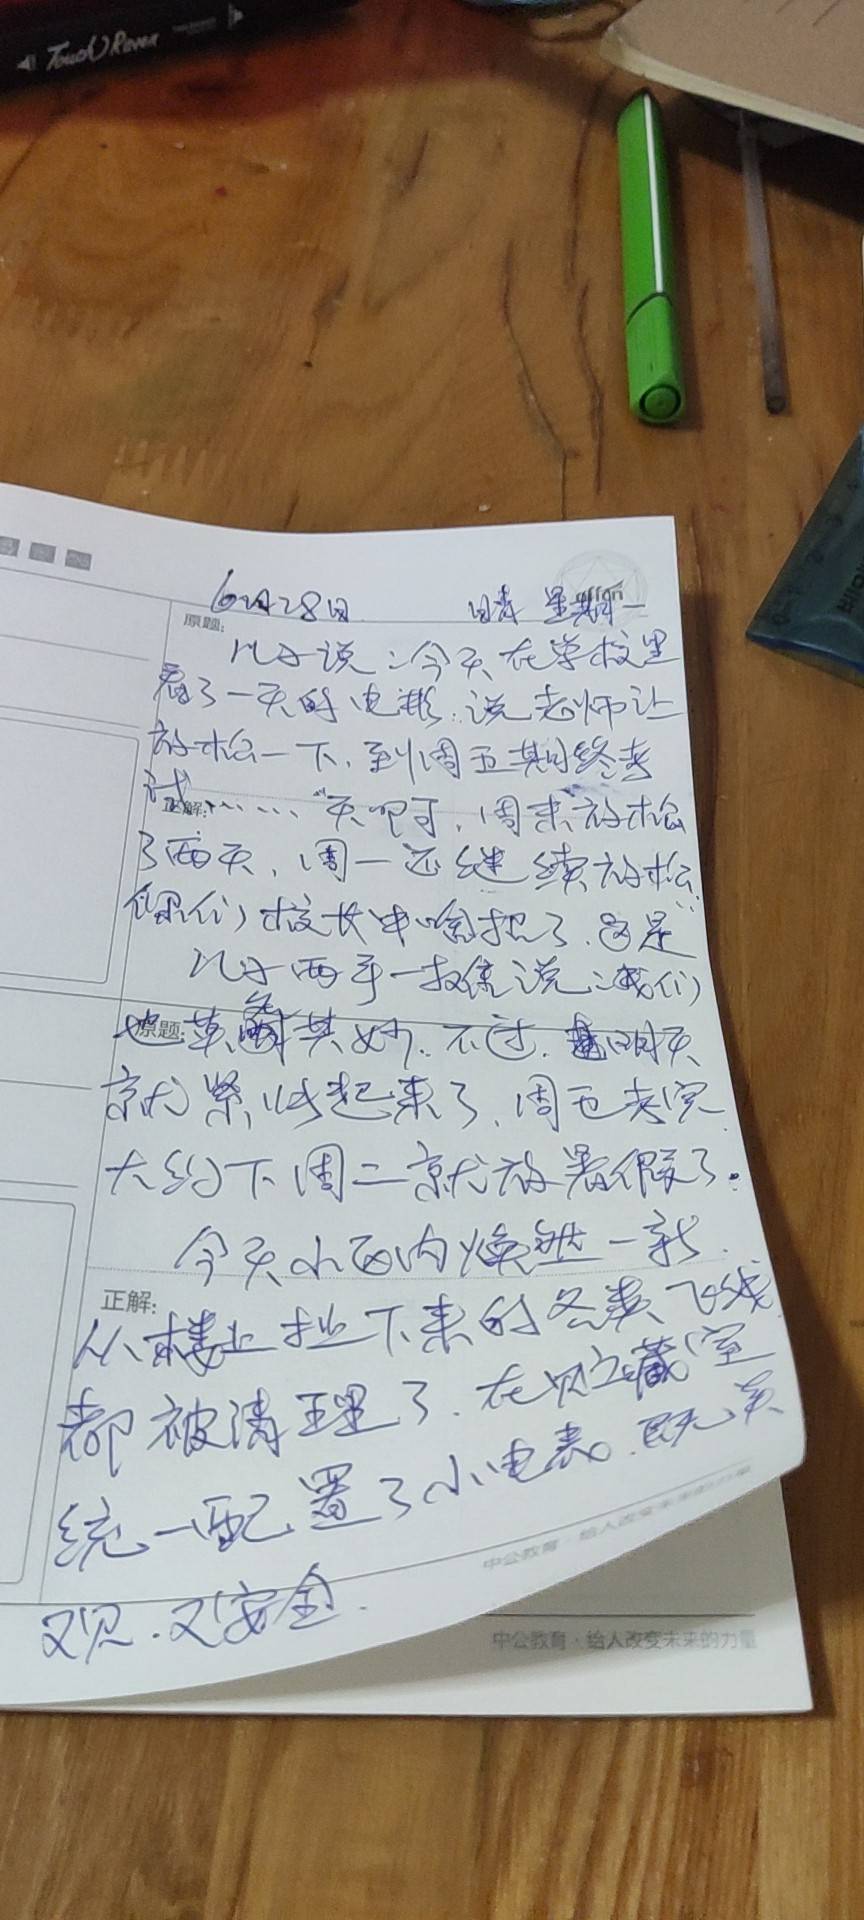 Touch Raven
offcn
6月28日 晴 星期一
原题:
儿子说:今天在学校里
看了一天的电影.说老师让
放松一下,到周五期终考
试……
正解:
天啊,周末放松
了两天,周一还继续放松.
你们校长中啥招了.这是
儿子两手一摊说:我们
原题:
也莫名其妙.不过.明天
就紧张起来了,周五考完
大约下周二就放暑假了.
今天小区内焕然一新.
正解:
从楼上扯下来的各类飞线
都被清理了.在贮藏室
统一配置了小电表.既美
观.又安全.
中公教育·给人改变未来的力量
中公教育·给人改变未来的力量